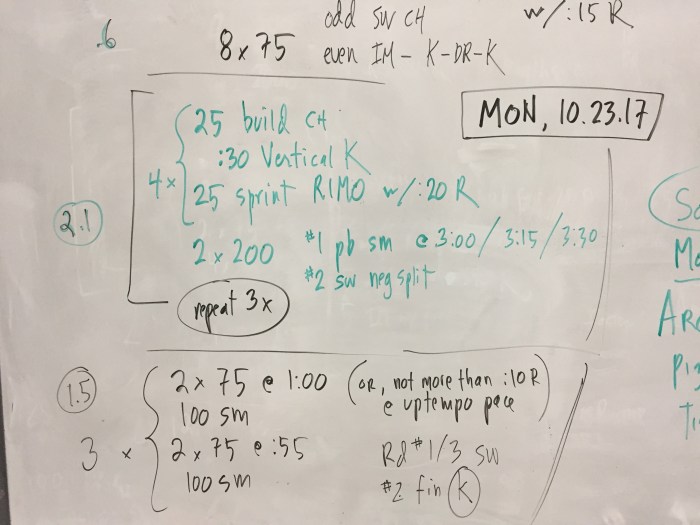 odd SW CH w/:15 R
.6
8x75 even IM - K-DR-K
MON, 10.23.17
25 build CH
:30 Vertical K
4x
25 sprint RIMO w/:20 R
2.1
2 x 200 #1 pb sm @ 3:00/3:15/3:30
#2 sw neg split
repeat 3x
1.5
2 x 75 @ 1:00 (OR, not more than :10 R
@ uptempo pace)
100 sm
3 x
2 x 75 @ :55 Rd #1/3 sw
100 sm #2 fin K